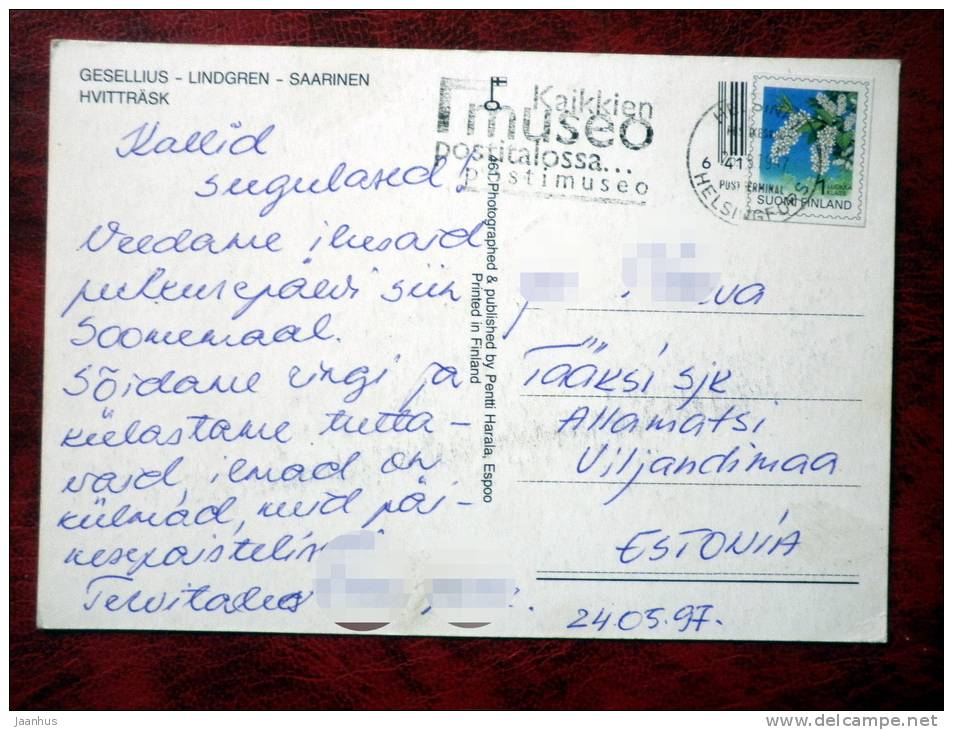 GESELLIUS - LINDGREN - SAARINEN
HVITTRÄSK
Kallid
sugulased!
Veedame ilusaid
puhkusepäevi siin
Soomemaal.
Sõidame ringi ja
külastame tutta-
vaid, ilmad on
külmad, kuid päi-
kesepaistelised
Tervitades
Kaikkien
museo
postitalossa...
postimuseo
HELSINKI
HELSINGFORS
POSTTERMINAL
1 LUOKKA
KLASS
SUOMI FINLAND
461 Photographed & published by Pentti Harala, Espoo
Printed in Finland
Tääksi sjk
Allamatsi
Viljandimaa
ESTONIA
24.05.97.
jaanhus
www.delcampe.net